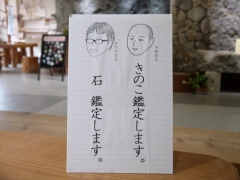 きのこ鑑定します。
石 鑑定します。